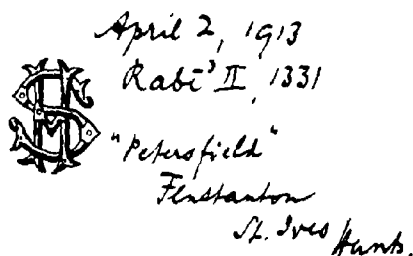 April 2, 1913
Rabīʾ II, 1331
"Petersfield"
Fenstanton
St. Ives Hunts.